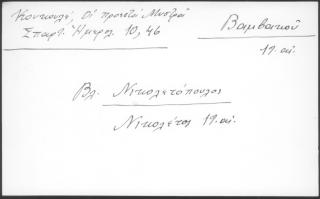 Κουκουλέ, Οἱ προεστοὶ Μυστρᾶ
Σπαρτ. Ἡμερολ. 10, 46
Βαμβακοῦ
19. αἰ.
Βλ. Νικολετόπουλος
Νικολέτος 19. αἰ.